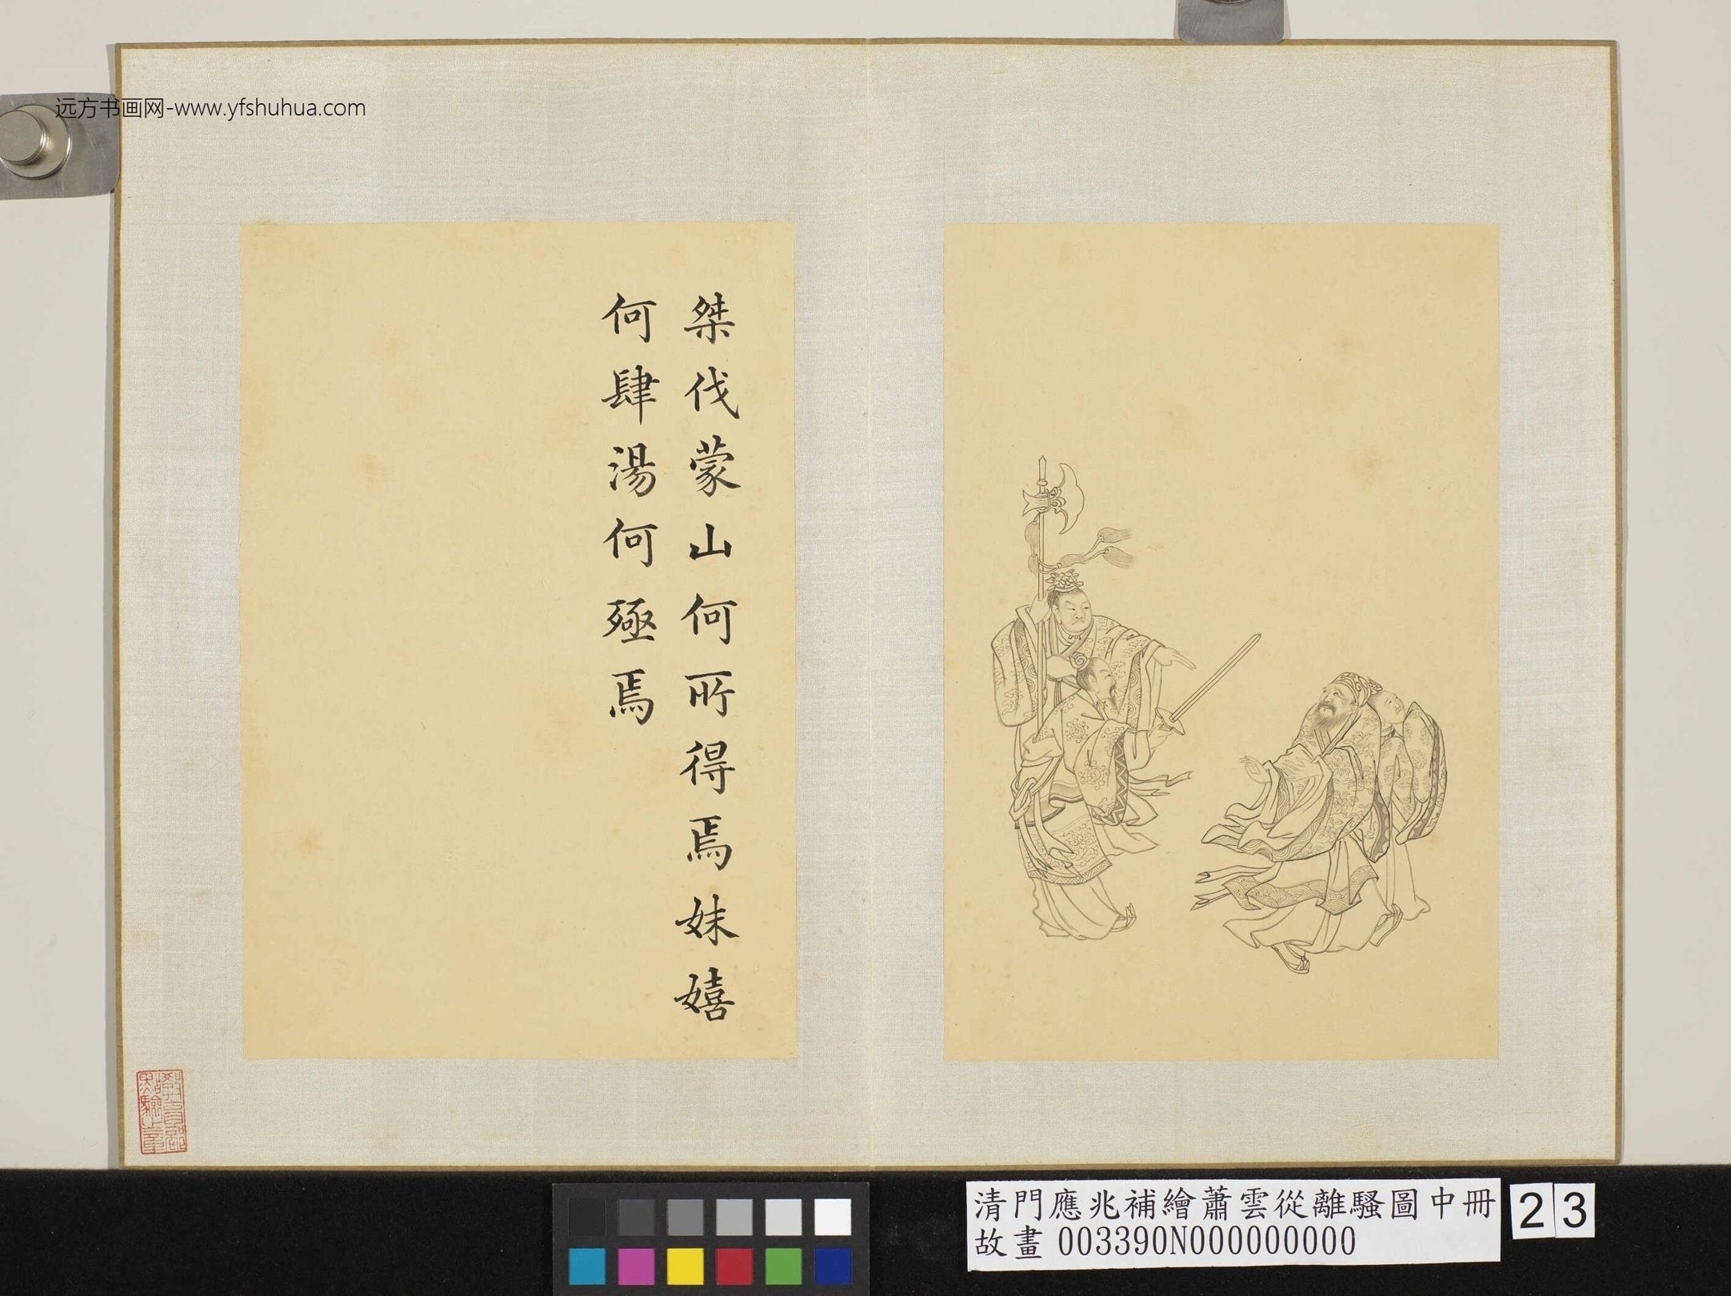 远方书画网-www.yfshuhua.com
桀伐蒙山何所得焉妺嬉
何肆湯何殛焉
教育部
點驗之章
清門應兆補繪蕭雲從離騷圖中冊
故畫 003390N000000000
23